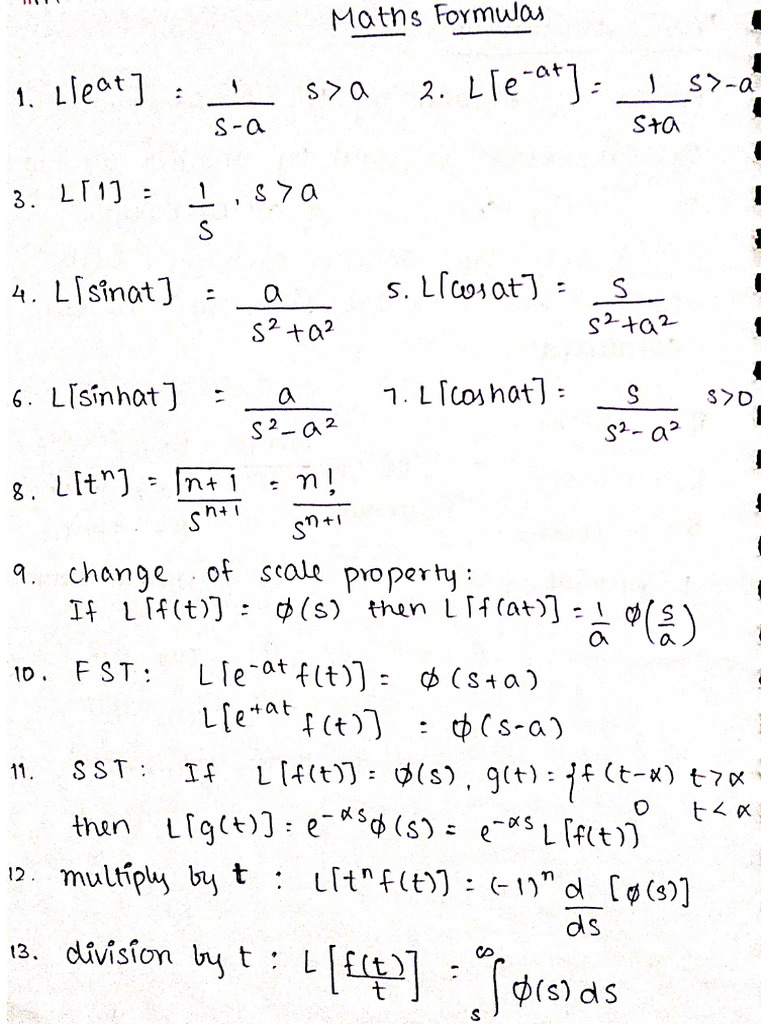 Maths Formulas
1. L[e^at] = 1/(s-a) s>a 2. L[e^-at] = 1/(s+a) s>-a
3. L[1] = 1/s, s>a
4. L[sinat] = a/(s²+a²) 5. L[cosat] = s/(s²+a²)
6. L[sinhat] = a/(s²-a²) 7. L[coshat] = s/(s²-a²) s>0
8. L[t^n] = ⎾n+1/s^(n+1) = n!/s^(n+1)
9. change of scale property:
If L[f(t)] = ϕ(s) then L[f(at)] = 1/a ϕ(s/a)
10. FST: L[e^-at f(t)] = ϕ(s+a)
L[e^+at f(t)] = ϕ(s-a)
11. SST: If L[f(t)] = ϕ(s), g(t) = {f(t-α) t>α
0 t<α
then L[g(t)] = e^-αs ϕ(s) = e^-αs L[f(t)]
12. multiply by t : L[t^n f(t)] = (-1)^n d/ds [ϕ(s)]
13. division by t : L[f(t)/t] = ∫_s^∞ ϕ(s) ds